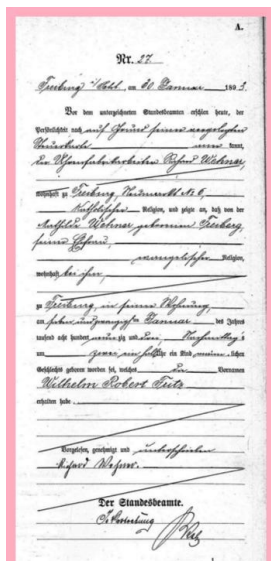 A.
Nr. 37
Freiburg i/Schl. am 30 Januar 1893
Vor dem unterzeichneten Standesbeamten erschien heute, der
Persönlichkeit nach auf Grund seiner vorgelegten
kannt,
der Uhrenfabrikarbeiter Richard Wehner,
wohnhaft zu Freiburg, № 6,
katholischer Religion, und zeigte an, daß von der
Mathilde Wehner geborenen
seiner Ehefrau,
evangelischer Religion,
wohnhaft bei ihm,
zu Freiburg, in seiner Wohnung,
am sieben und zwanzigsten Januar des Jahres
tausend acht hundert neunzig und drei, Nachmittags
um zwei ein halb Uhr ein Kind männlichen
Geschlechts geboren worden sei, welches die Vornamen
Wilhelm Robert Fritz
erhalten habe.
Vorgelesen, genehmigt und unterschrieben
Richard Wehner.
Der Standesbeamte.
In Vertretung